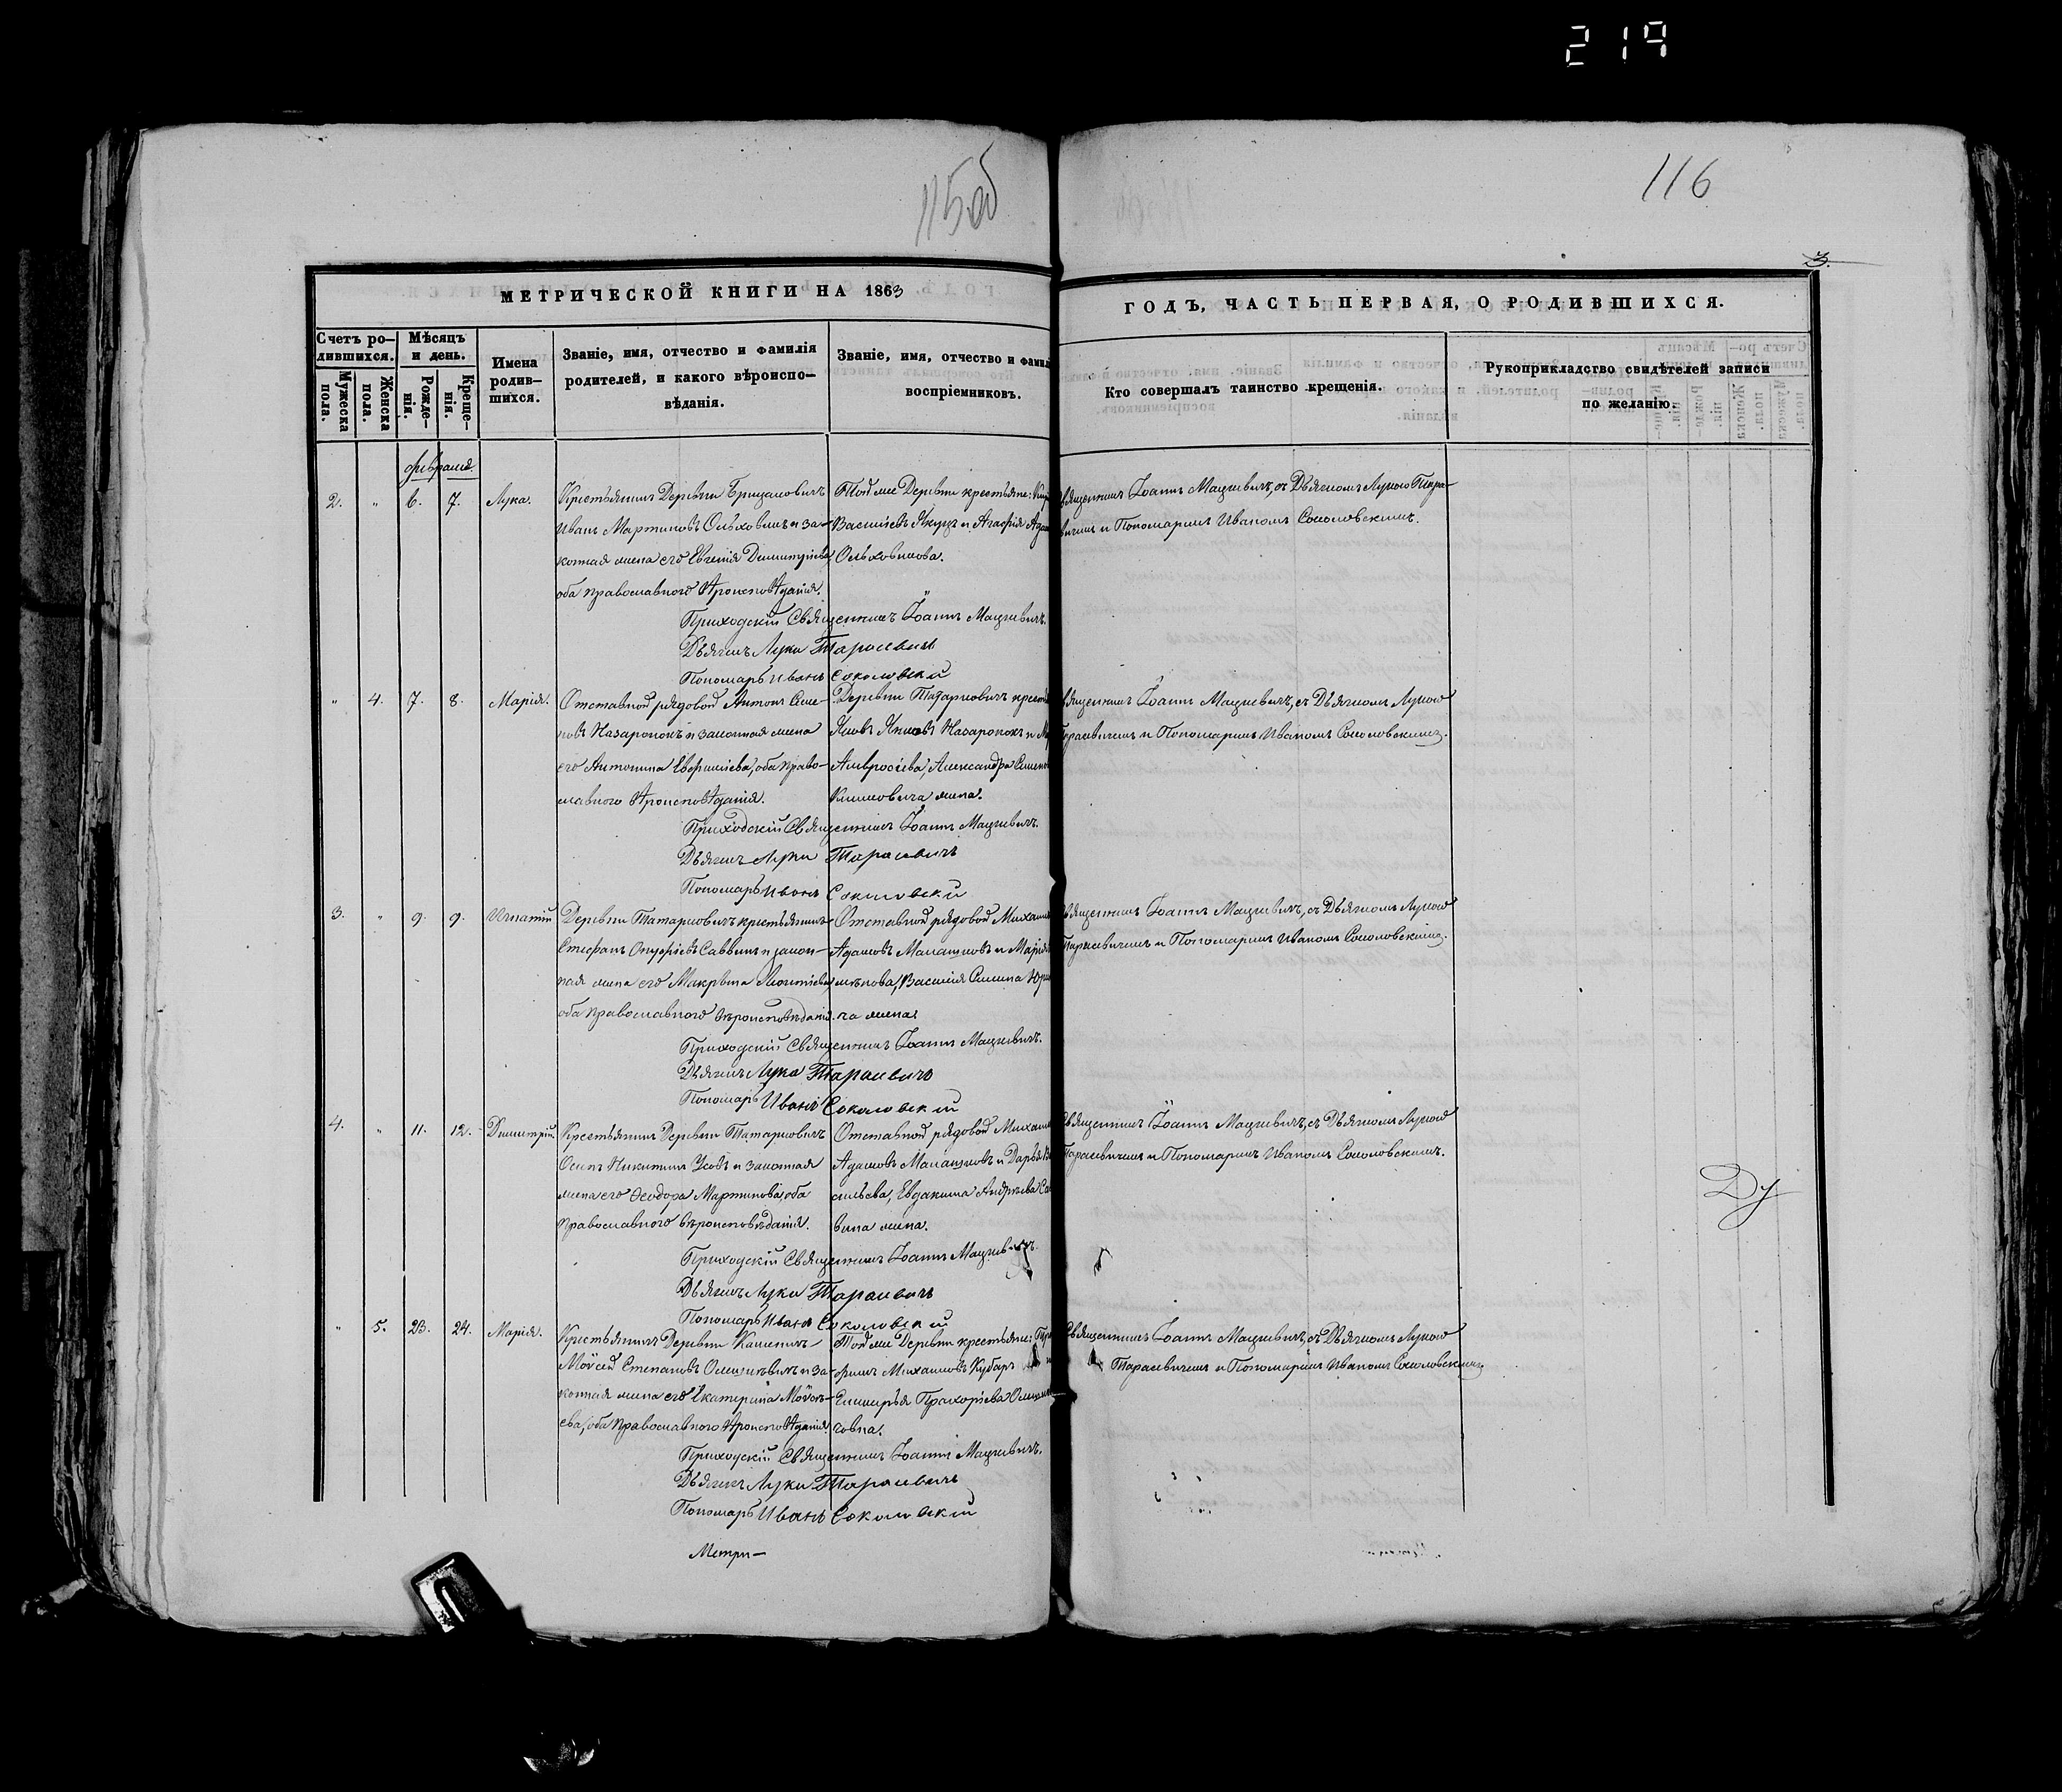 219
115об
116
3.
МЕТРИЧЕСКОЙ КНИГИ НА 1863
ГОДЪ, ЧАСТЬ ПЕРВАЯ, О РОДИВШИХСЯ.
Счетъ ро-
дившихся.
Мужеска
пола.
Женска
пола.
Мѣсяцъ
и день.
Рожде-
нія.
Креще-
нія.
Имена
родив-
шихся.
Званіе, имя, отчество и фамилія
родителей, и какого вѣроиспо-
вѣданія.
Званіе, имя, отчество и фамилі
воспріемниковъ.
Кто совершалъ таинство крещенія.
Рукоприкладство свидѣтелей записи
по желанію.
февраля.
2. " 6. 7. Лука.
Крестьянинъ Деревни
Иванъ Мартиновъ Ольховикъ и за-
конная жена его Евгенія Димитріева
оба православного вѣроисповѣданія.
Той же Деревни крестьяне:
Васильевъ Якуцъ и Агафія
Ольховикова.
Священникъ Іоаннъ Мацкевичъ, съ Дьячкомъ Лукою Тара-
евичемъ и Пономаремъ Иваномъ Соколовскимъ.
Приходскій Священникъ Іоаннъ Мацкевичъ.
Дьячекъ Лука Тарасевичъ
Пономарь Иванъ Соколовскій
" 4. 7. 8. Марія.
Отставной рядовой Антонъ Семе-
новъ Назаронокъ и законная жена
его Антонина Евфиміева, оба право-
славного вѣроисповѣданія.
Деревни Татарковичъ
Яковъ Назаронокъ и
Амвросіева, Александра
Климовича жена.
Священникъ Іоаннъ Мацкевичъ, съ Дьячкомъ Лукою
Тарасевичемъ и Пономаремъ Иваномъ Соколовскимъ.
Приходскій Священникъ Іоаннъ Мацкевичъ.
Дьячекъ Лука Тарасевичъ
Пономарь Иванъ Соколовскій
3. " 9. 9. Игнатій
Деревни Татарковичъ крестьянинъ
Стефанъ Онуфріевъ Саввинъ и закон-
ная жена его Макрина Леонтіева,
оба православного вѣроисповѣданія.
Отставной рядовой
Адамовъ Малашковъ и Марія
Василія Семена
ча жена.
Священникъ Іоаннъ Мацкевичъ, съ Дьячкомъ Лукою
Тарасевичемъ и Пономаремъ Иваномъ Соколовскимъ.
Приходскій Священникъ Іоаннъ Мацкевичъ.
Дьячекъ Лука Тарасевичъ
Пономарь Иванъ Соколовскій
4. " 11. 12. Димитрій.
Крестьянинъ Деревни Татарковичъ
Осипъ Никитинъ Усовъ и законная
жена его Феодора Мартинова, оба
православного вѣроисповѣданія.
Отставной рядовой
Адамовъ Малашковъ и Дарья Ва
сильева, Евдакима Андреева Са
вина жена.
Священникъ Іоаннъ Мацкевичъ, съ Дьячкомъ Лукою
Тарасевичемъ и Пономаремъ Иваномъ Соколовскимъ.
Приходскій Священникъ Іоаннъ Мацкевичъ.
Дьячекъ Лука Тарасевичъ
Пономарь Иванъ Соколовскій
" 5. 23. 24. Марія.
Крестьянинъ Деревни Каменичъ
Моѵсей Степановъ и за-
конная жена его Екатерина Моѵсе-
ева, оба православного вѣроисповѣданія.
Той же Деревни крестьяне:
Михаиловъ Кубаръ и
Прахоріева
човна.
Священникъ Іоаннъ Мацкевичъ, съ Дьячкомъ Лукою
Тарасевичемъ и Пономаремъ Иваномъ Соколовскимъ.
Приходскій Священникъ Іоаннъ Мацкевичъ.
Дьячекъ Лука Тарасевичъ
Пономарь Иванъ Соколовскій
Метри-